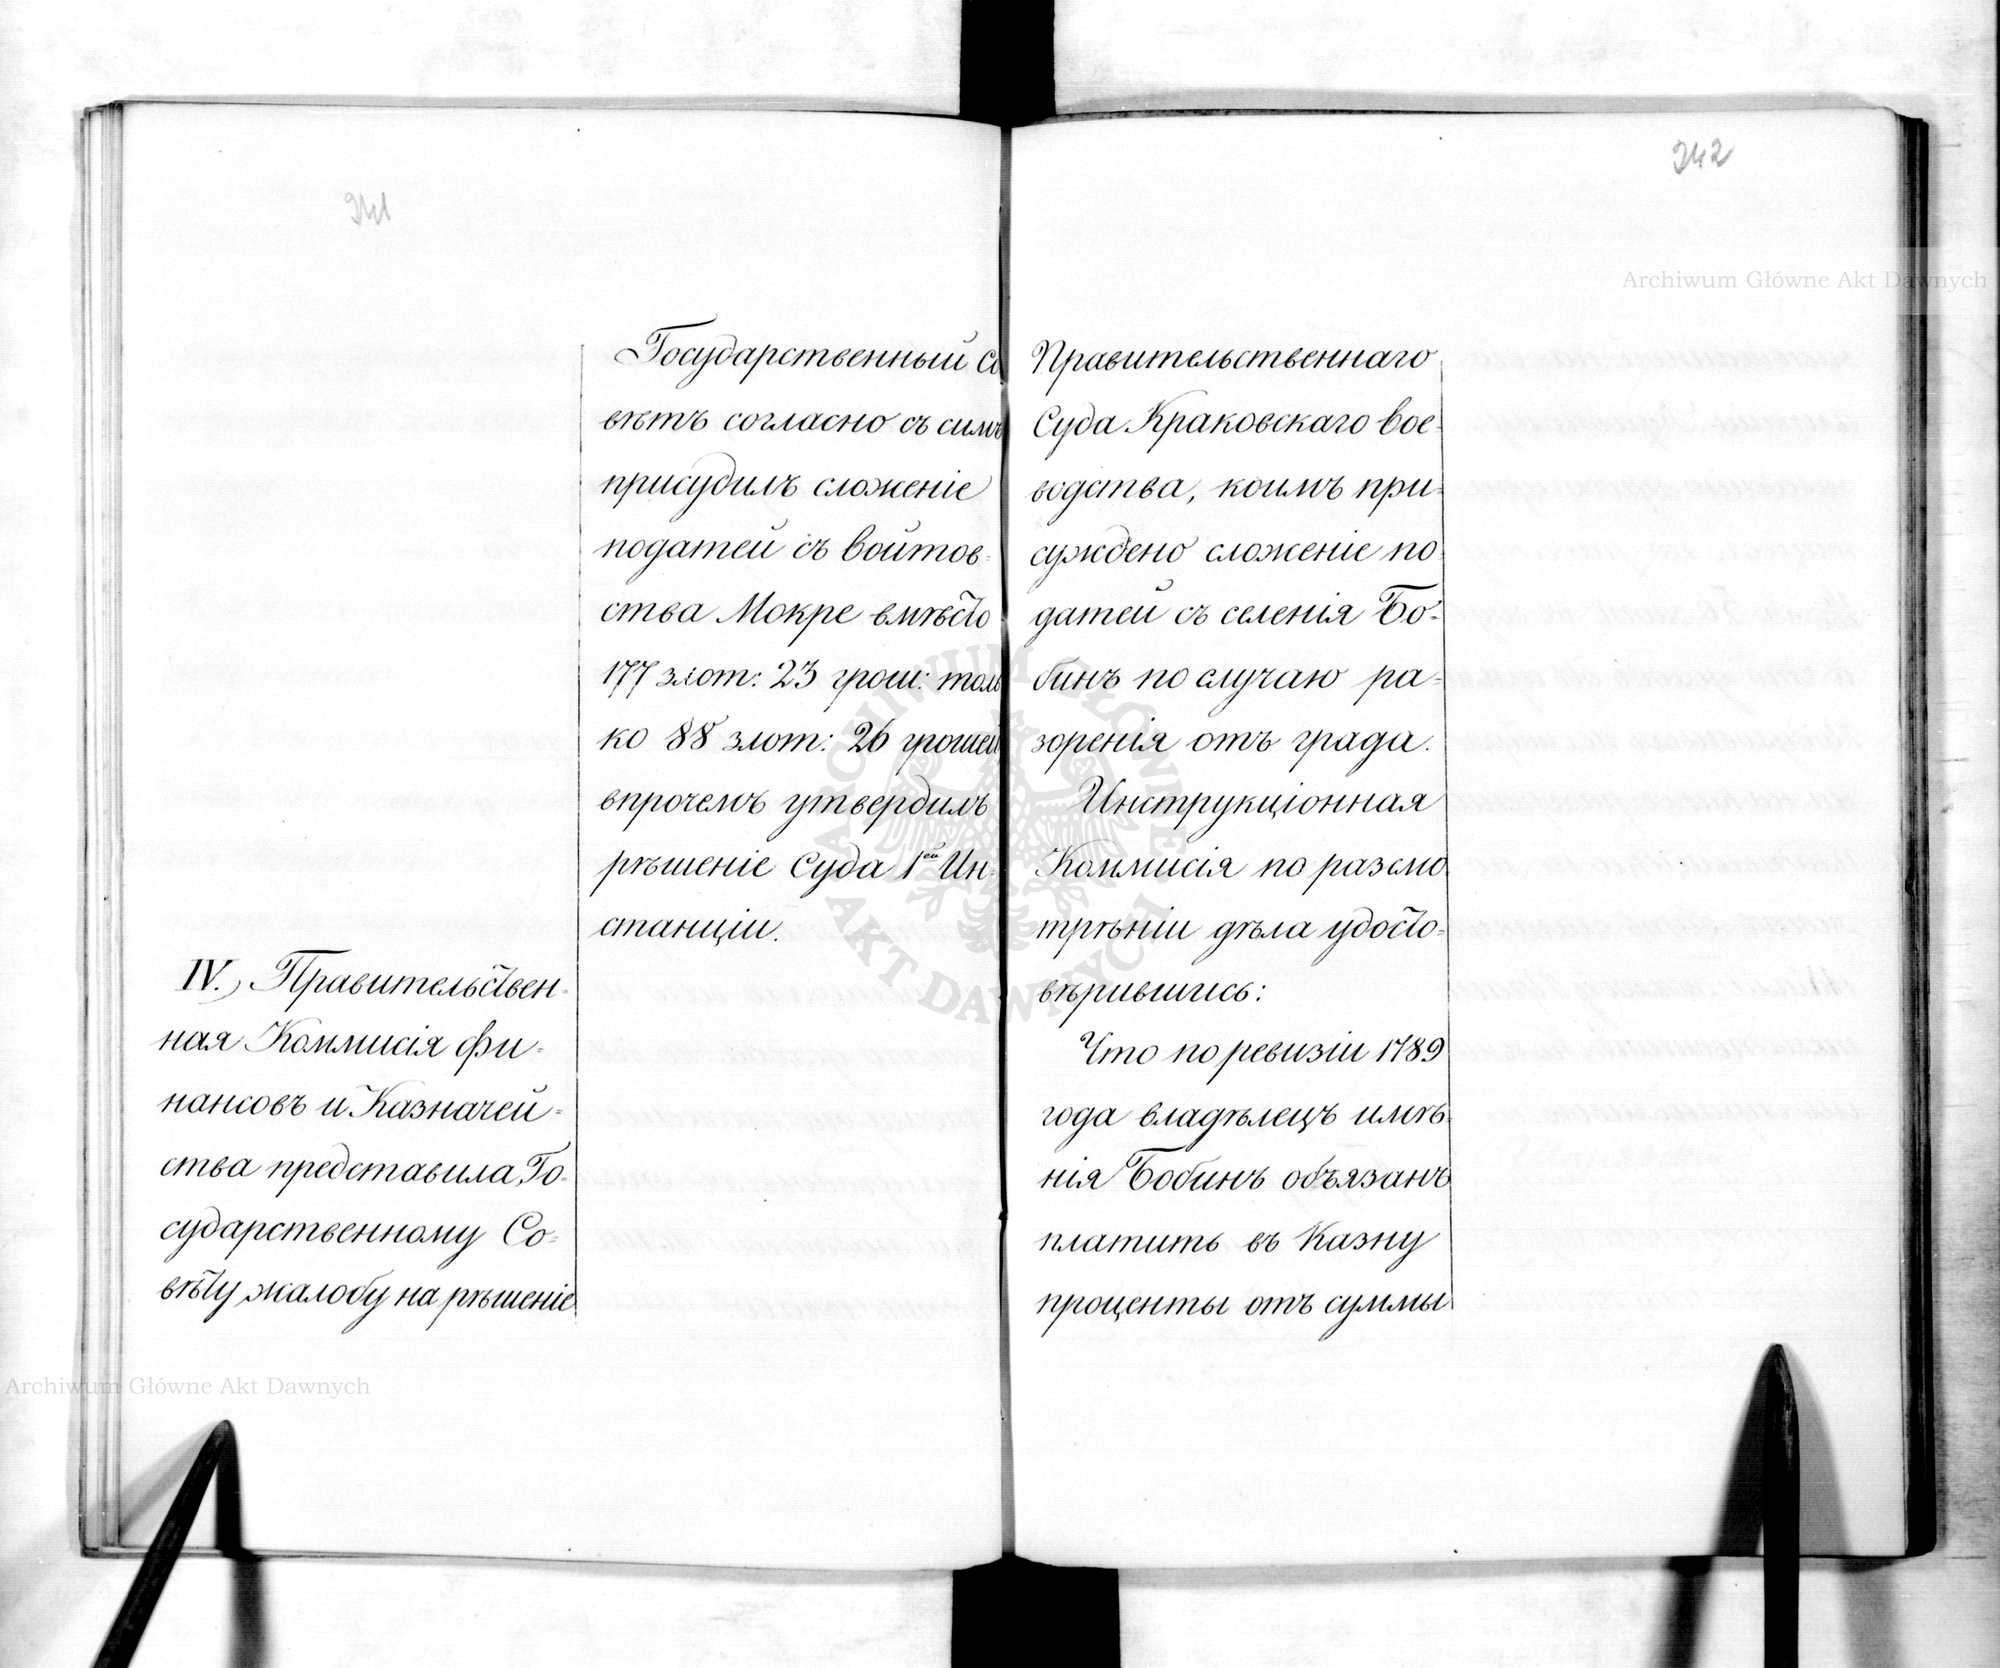 241
Государственный Со
вѣтъ согласно съ симъ
присудилъ сложеніе
податей съ войтов=
ства Мокре вмѣсто
177 злот: 23 грош: толь
ко 88 злот: 26 грошей
впрочемъ утвердилъ
рѣшеніе Суда 1ей Ин=
станціи.
IV.) Правительствен=
ная Коммисія фи=
нансовъ и Казначей=
ства представила Го=
сударственному Со=
вѣту жалобу на рѣшеніе
242
Правительственнаго
Суда Краковскаго вое=
водства, коимъ при=
суждено сложеніе по=
датей съ селенія Бо=
бинъ по случаю ра=
зоренія отъ града.
Инструкціонная
Коммисія по разсмо=
трѣніи дѣла удосто=
вѣрившись:
Что по ревизіи 1789
года владѣлецъ имѣ=
нія Бобинъ объязанъ
платить въ Казну
проценты отъ суммы
Archiwum Główne Akt Dawnych
Archiwum Główne Akt Dawnych
ARCHIWUM GŁÓWNE AKT DAWNYCH